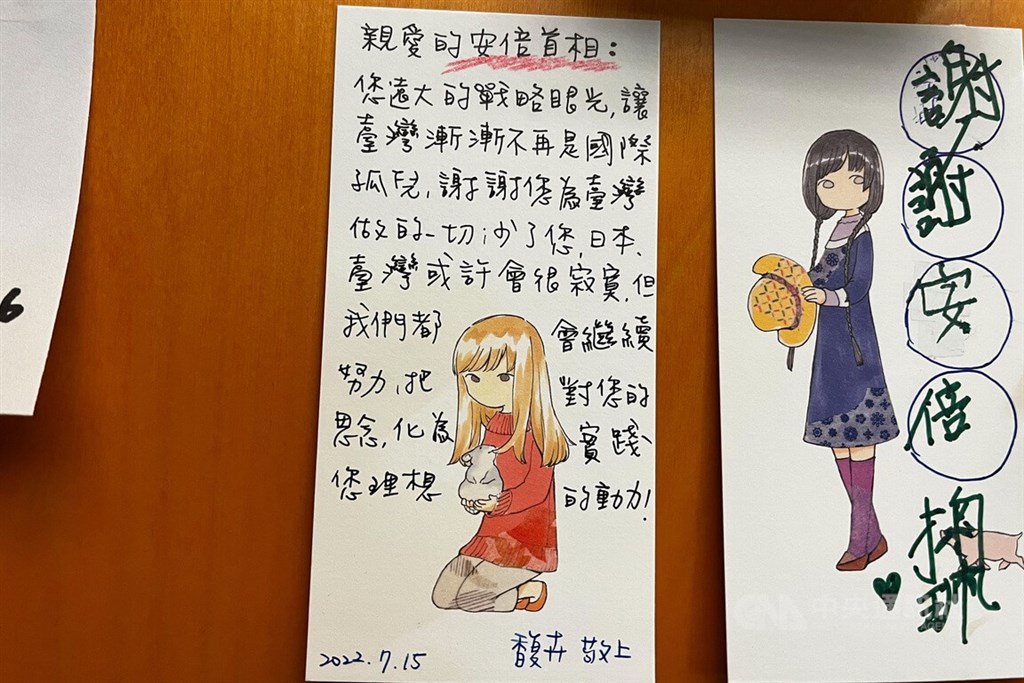 親愛的安倍首相：
您遠大的戰略眼光,讓
臺灣漸漸不再是國際
孤兒,謝謝您為臺灣
做的一切;少了您,日本、
臺灣或許會很寂寞,但
我們都會繼續
努力,把對您的
思念,化為實踐
您理想的動力!
2022.7.15
馥卉 敬上
謝
謝
安
倍
6